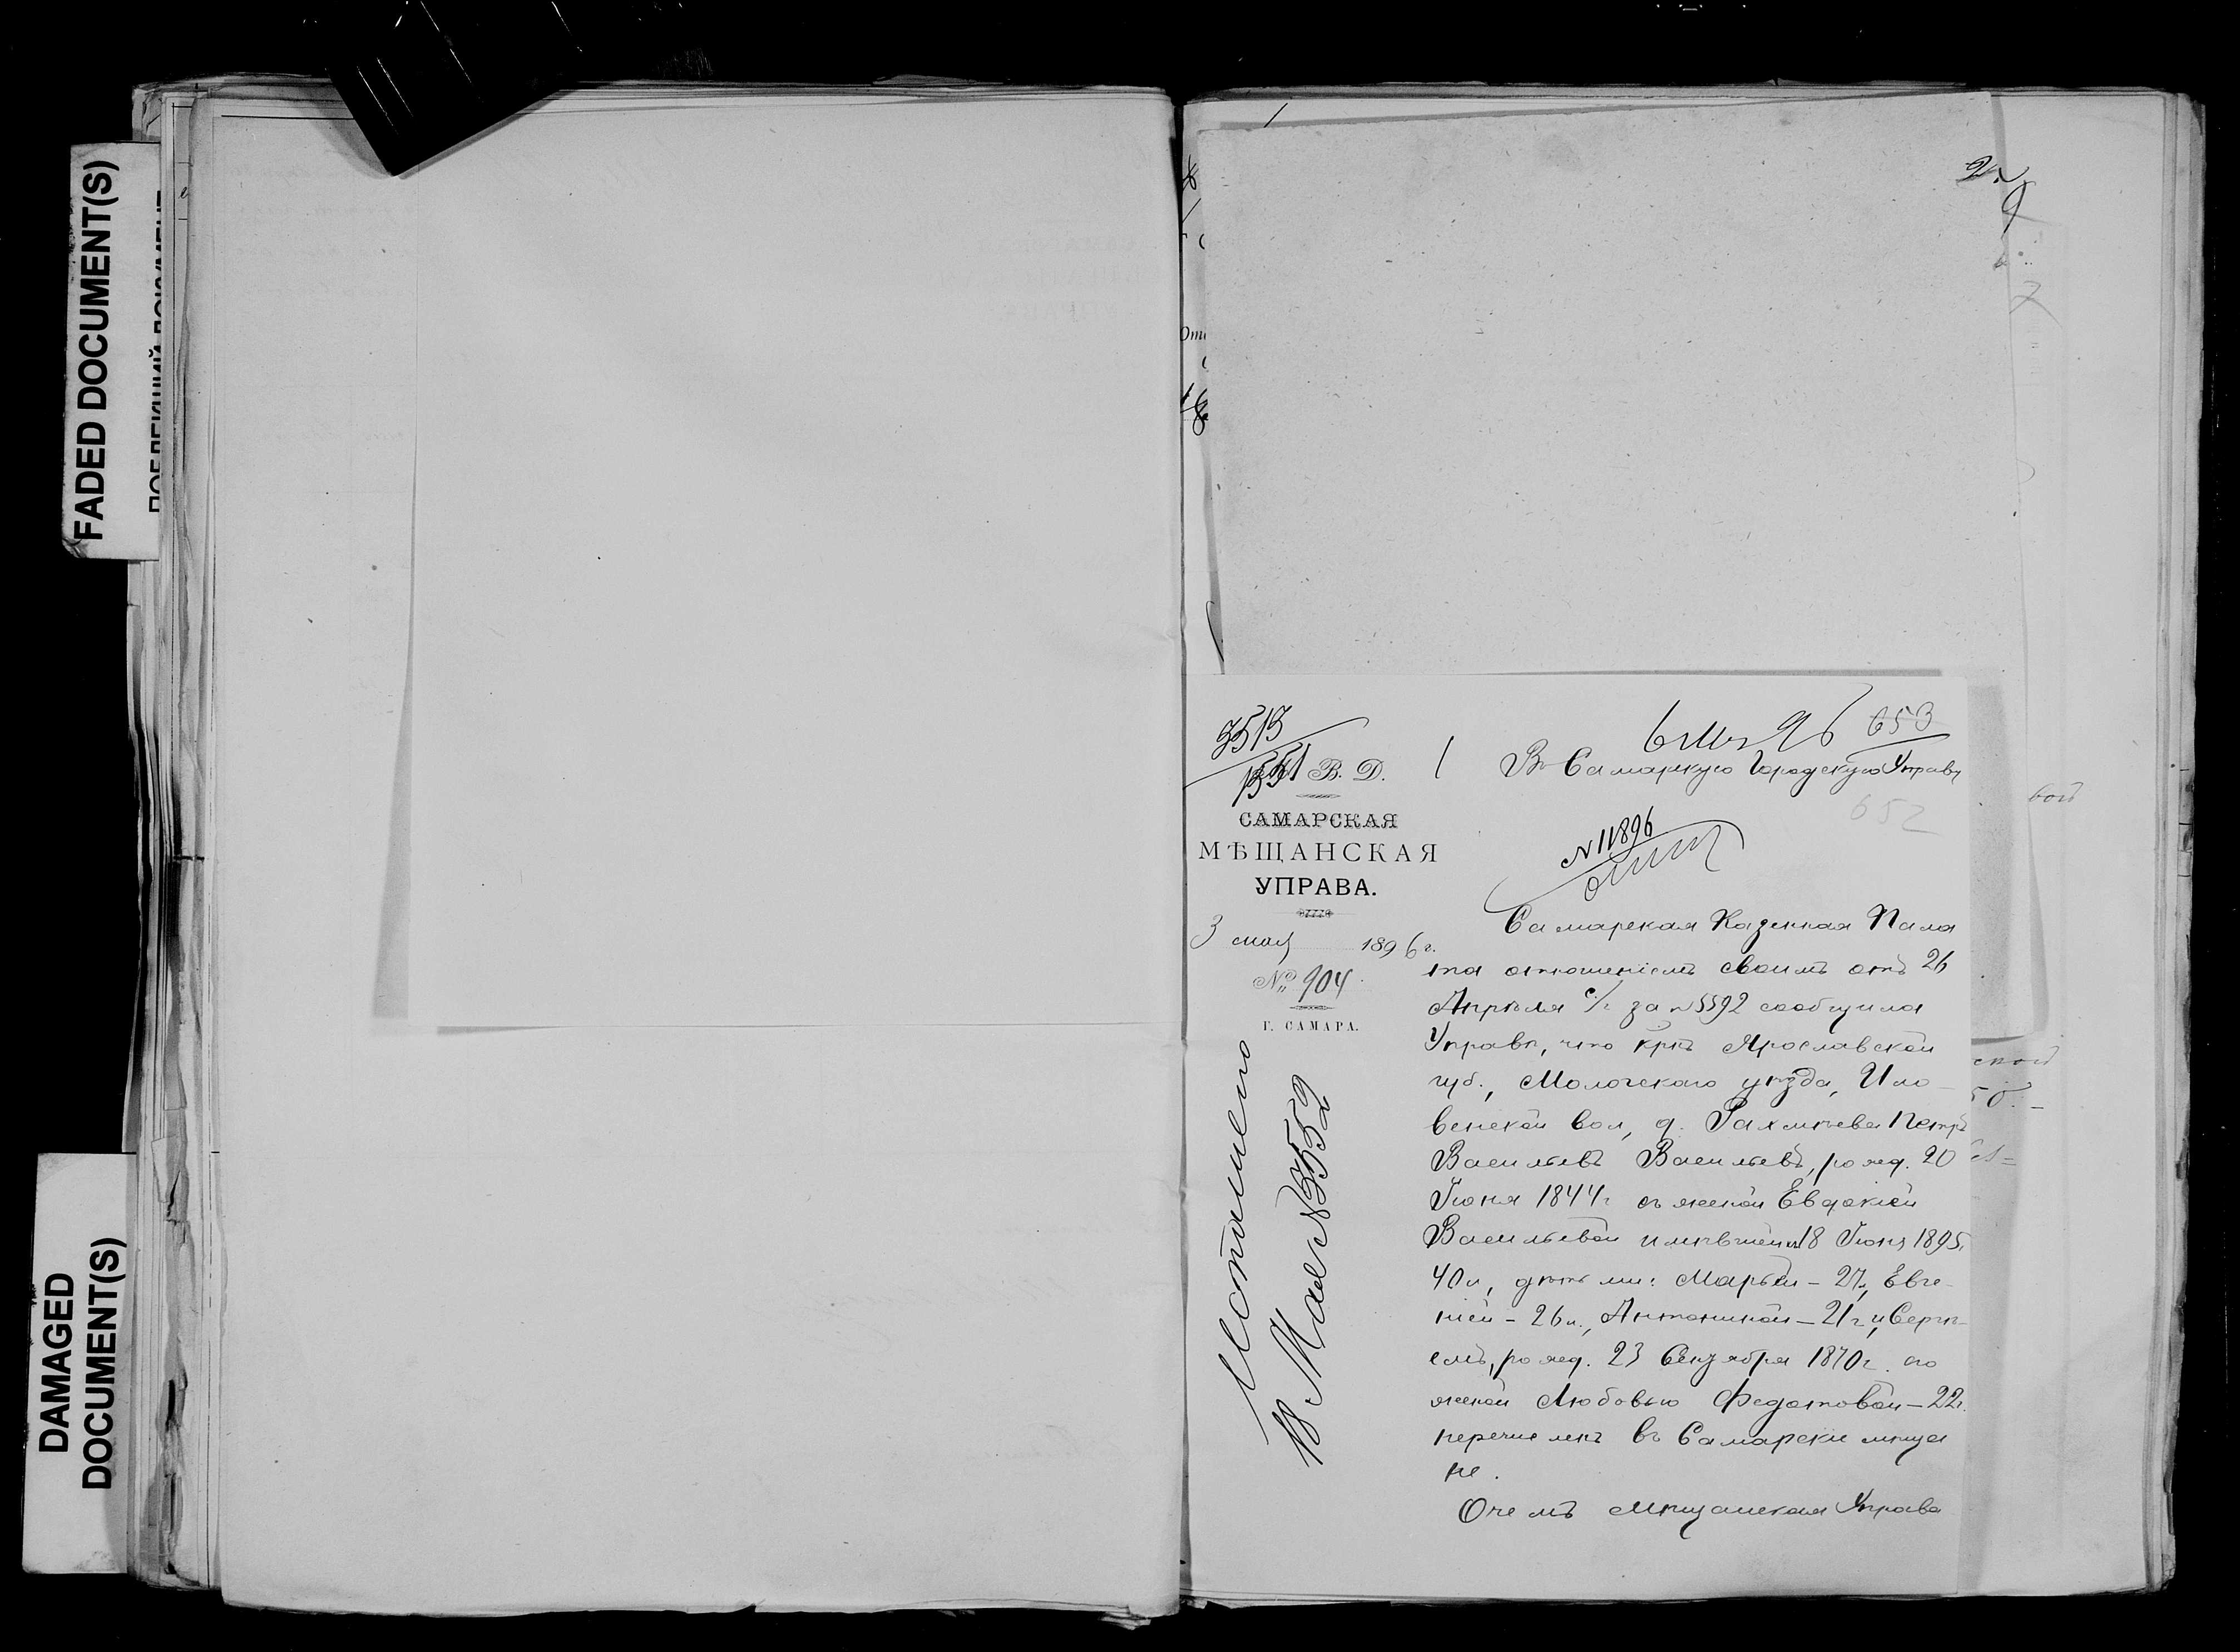 FADED DOCUMENT(S)
DAMAGED
DOCUMENT(S)
3513
1551
В. Д.
САМАРСКАЯ
МѢЩАНСКАЯ
УПРАВА.
3 мая 1896 г.
№ 904
Г. САМАРА.
18 Мая № 3552
653
Въ Самарскую Городскую Управу
652
№ 11896
Самарская Казенная Пала
та отношеніемъ своимъ отъ 26
Апрѣля с/г за № 5592 сообщила
Управѣ, что крнъ Ярославской
губ., Мологскаго уѣзда, Ило
венской вол, д. Рахмѣева Петръ
Васильевъ Васильевъ, рожд. 20
Іюня 1844г съ женой Евдокіей
Васильевой имѣвшей 18 Іюня 1895г
40л, дѣтьми: Марьей - 27л, Евге-
ніей - 26л., Антониной - 21г и Серге-
емъ, рожд. 23 Сентября 1870г. со
женой Любовью Федотовой - 22г.
перечисленъ въ Самарскіе мѣща
не.
О чемъ Мѣщанская Управа